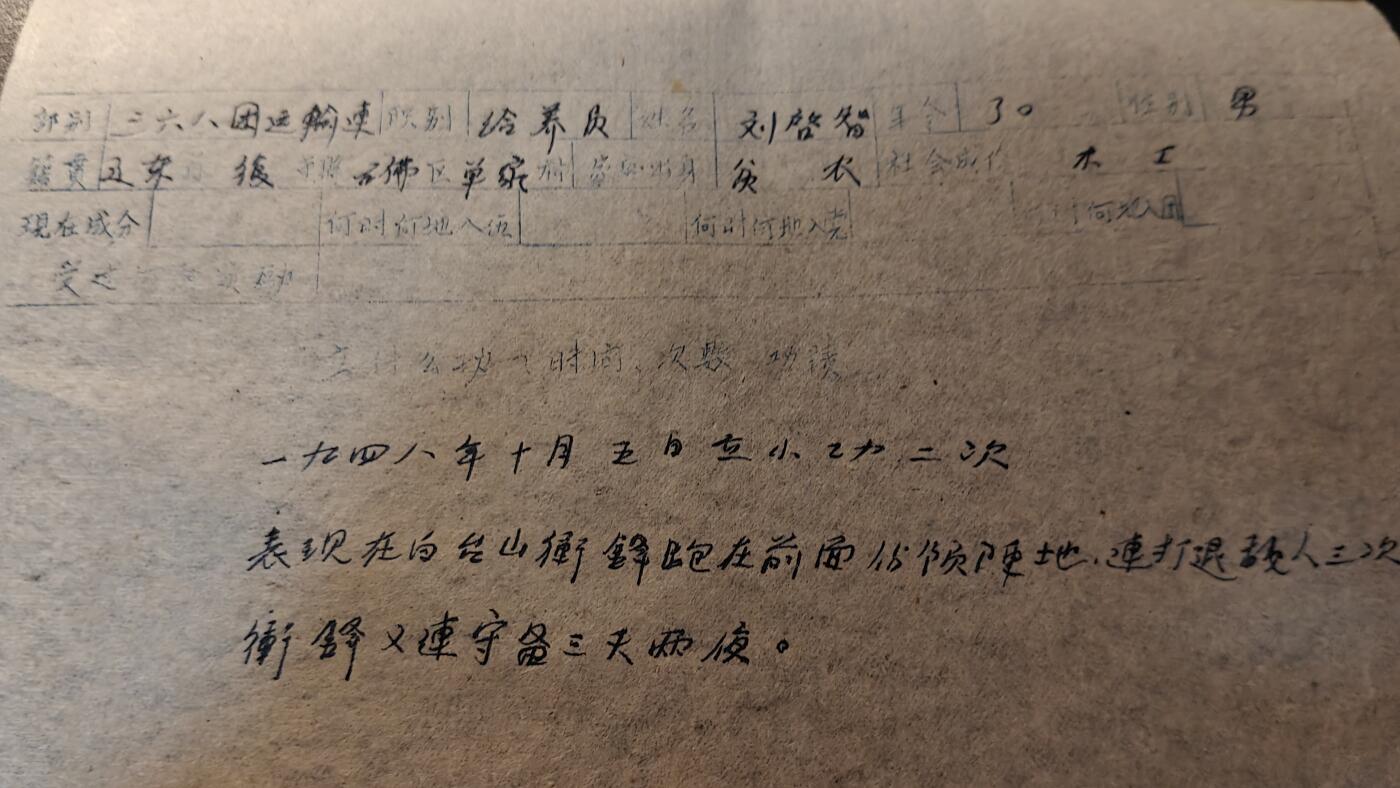 部别 三六八团运输連 职别 给养员 姓名 刘啓智 年令 30 性别 男
籍貫 辽东 复 县 石佛区 单家村 家庭出身 贫农 社会成份 木工
現在成分 何时何地入伍 何时何地入党 何时何地入团
受过何
立什么功(时间、次数、功績
一九四八年十月五日立小功二次
表现在白台山衝鋒跑在前面佔领陣地、連打退敌人三次
衝鋒又連守备三天两夜。